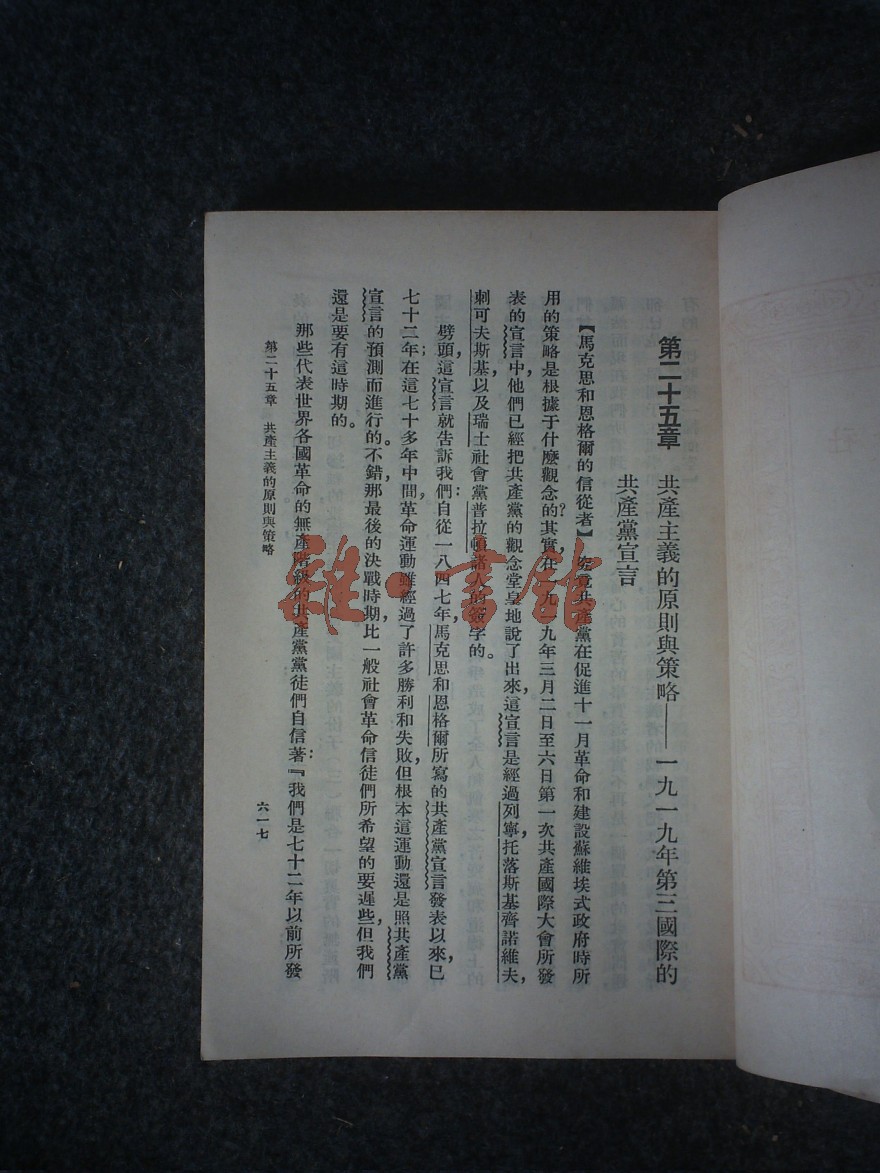 第二十五章　共產主義的原則與策略——一九一九年第三國際的
共產黨宣言
【馬克思和恩格爾的信從者】究竟共產黨在促進十一月革命和建設蘇維埃式政府時所
用的策略是根據于什麼觀念的？其實，在一九一九年三月二日至六日第一次共產國際大會所發
表的宣言中，他們已經把共產黨的觀念堂皇地說了出來，這宣言是經過列寧，托落斯基，齊諾維夫，
刺可夫斯基，以及瑞士社會黨普拉頓諸人的簽字的。
劈頭，這宣言就告訴我們：自從一八四七年，馬克思和恩格爾所寫的共產黨宣言發表以來，已
七十二年；在這七十多年中間，革命運動雖經過了許多勝利和失敗，但根本這運動還是照共產黨
宣言的預測而進行的。不錯，那最後的決戰時期，比一般社會革命信徒們所希望的要遲些，但我們
還是要有這時期的。
那些代表世界各國革命的無產階級的共產黨黨徒們自信著：『我們是七十二年以前所發
第二十五章　共產主義的原則與策略
六一七
雜·書館